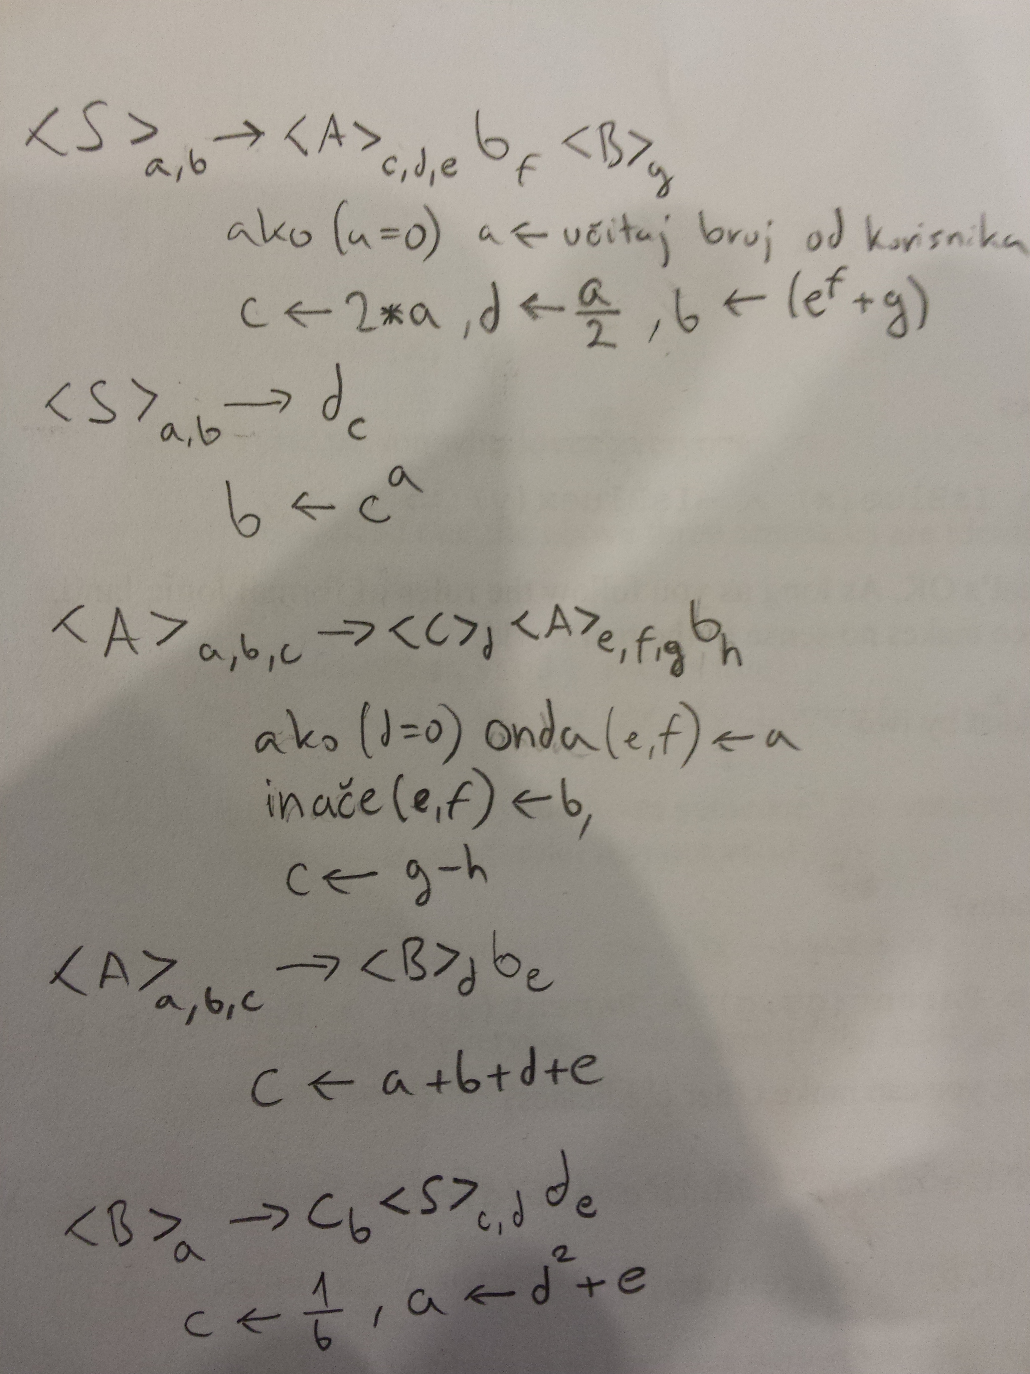 <S>a,b → <A>c,d,e bf <B>g
ako (a=0) a ← učitaj broj od korisnika
c ← 2*a, d ← a/2, b ← (e^f + g)
<S>a,b → dc
b ← c^a
<A>a,b,c → <C>d <A>e,f,g bh
ako (d=0) onda (e,f) ← a
inače (e,f) ← b,
c ← g-h
<A>a,b,c → <B>d be
c ← a+b+d+e
<B>a → cb <S>c,d de
c ← 1/b, a ← d^2 + e